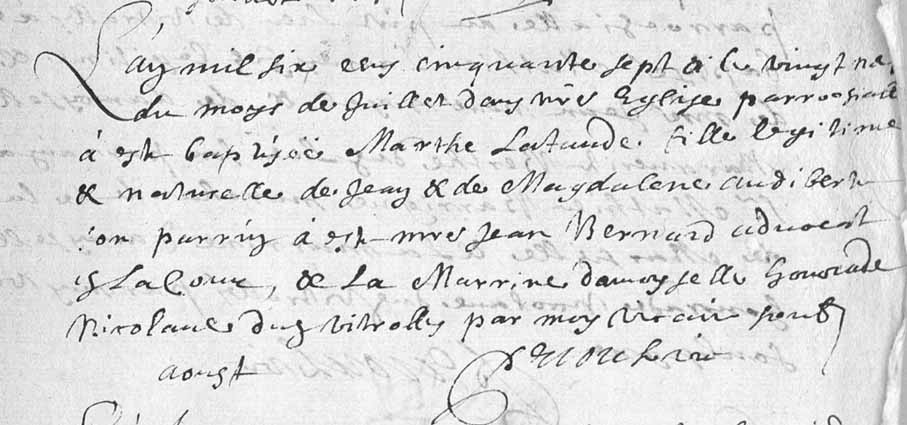 L'an mil six cens cinquante sept & le vingt
du moys de Juillet dans nre Eglise parrochialle
à esté baptisée Marthe Lataude fille legitime
& naturelle de Jean & de Magdalene audibert
son parrin à esté mre Jean Bernard advocat
en La Cour, & La Marrine damoyselle honorade
Nicolaue du vitrolles par moy vicaire soubz
aoust